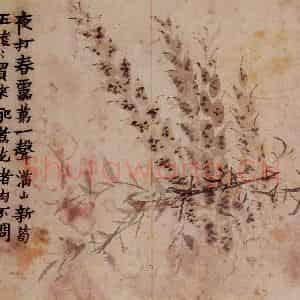 夜打春雷第一聲滿山新筍
玉棱〻買來配煮花豬肉不問
Shufawang.Cn